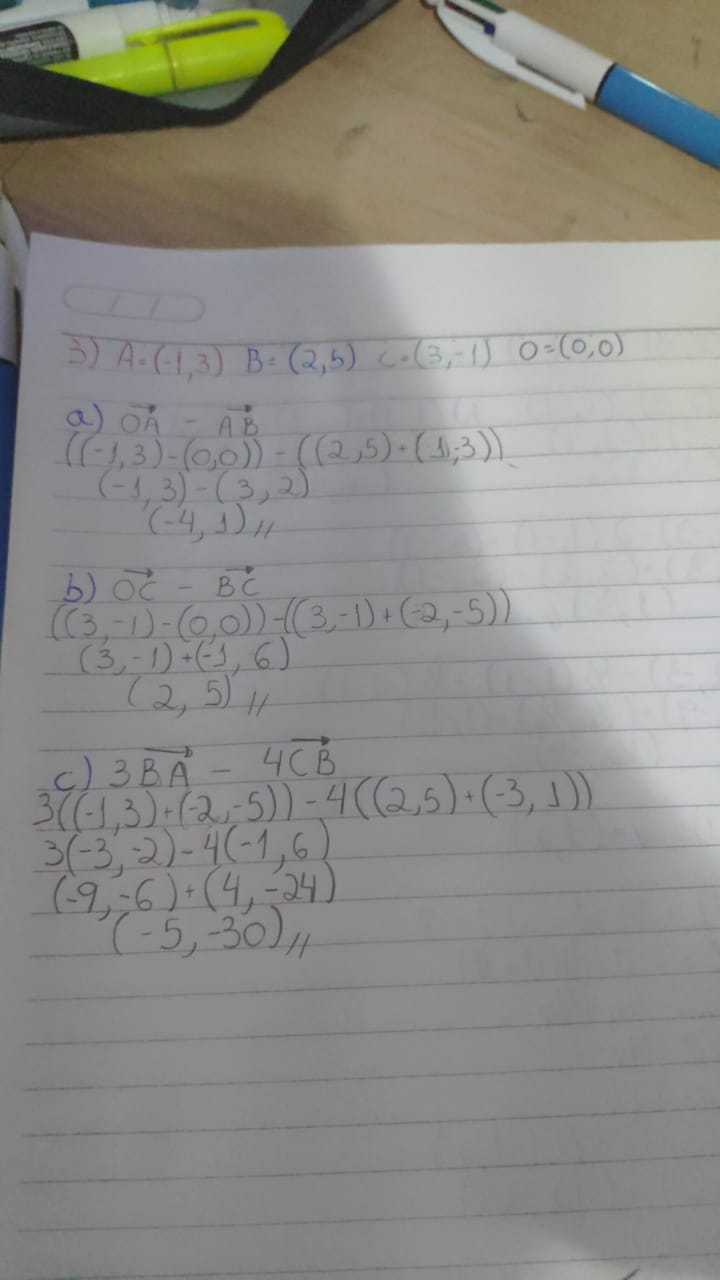 3) A=(-1,3) B=(2,5) C=(3,-1) O=(0,0)
a) OA - AB
((-1,3)-(0,0)) - ((2,5)+(1,-3))
(-1,3)-(3,2)
(-4,1)//
b) OC - BC
((3,-1)-(0,0))-((3,-1)+(-2,-5))
(3,-1)+(-1,6)
(2,5)//
c) 3BA - 4CB
3((-1,3)+(-2,-5))-4((2,5)+(-3,1))
3(-3,-2)-4(-1,6)
(-9,-6)+(4,-24)
(-5,-30)//